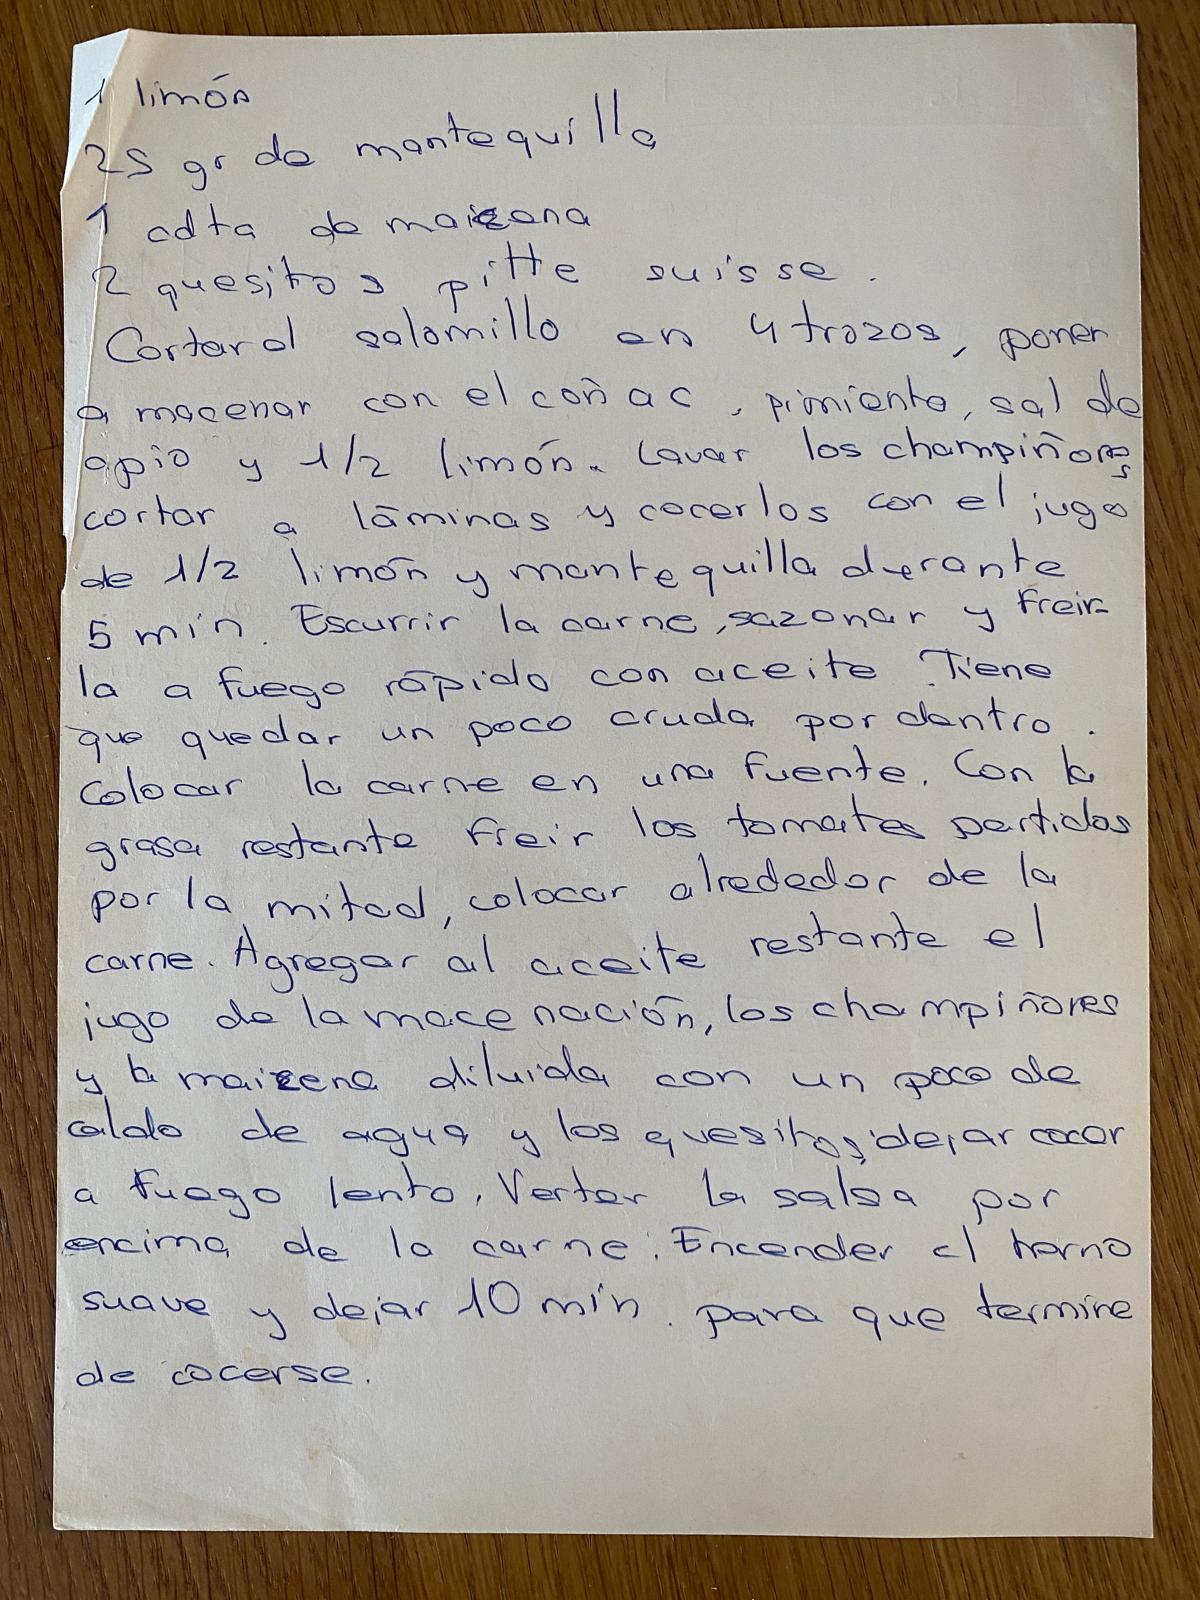 1 limón
25 gr de mantequilla
1 cdta de maizena
2 quesitos pitte suisse.
Cortar el solomillo en 4 trozos, poner
a macenar con el coñac, pimienta, sal de
apio y 1/2 limón. Lavar los champiñones
cortar a láminas y cocerlos con el jugo
de 1/2 limón y mantequilla durante
5 min. Escurrir la carne, sazonar y freir-
la a fuego rápido con aceite. Tiene
que quedar un poco cruda por dentro.
Colocar la carne en una fuente. Con la
grasa restante freir los tomates partidos
por la mitad, colocar alrededor de la
carne. Agregar al aceite restante el
jugo de la macenación, los champiñones
y la maizena diluida con un poco de
caldo de agua y los quesitos, dejar cocer
a fuego lento. Verter la salsa por
encima de la carne. Encender el horno
suave y dejar 10 min. para que termine
de cocerse.